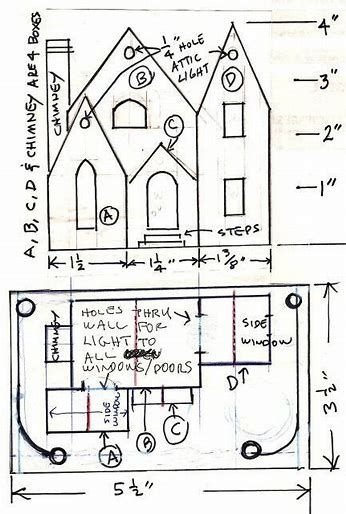 A, B, C, D & CHIMNEY ARE 4 BOXES
CHIMNEY
1/4" HOLE
ATTIC
LIGHT
A
B
C
D
STEPS
4"
3"
2"
1"
1 1/2
1 1/4"
1 3/8"
CHIMNEY
HOLES THRU
WALL FOR
LIGHT TO
ALL
WINDOWS/DOORS
SIDE
WINDOW
SIDE
WINDOW
A
B
C
D
3 1/2"
5 1/2"